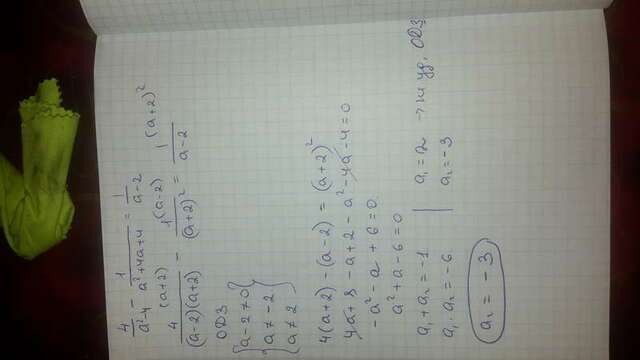 4/(a²-4) - 1/(a²+4a+4) = 1/(a-2)
(a+2) 1(a-2) 1(a+2)²
4/((a-2)(a+2)) - 1/(a+2)² = 1/(a-2)
ОДЗ
{a-2≠0
{a≠-2
{a≠2
4(a+2) - (a-2) = (a+2)²
4a+8-a+2-a²-4a-4=0
-a²-a+6=0
a²+a-6=0
a₁+a₂=-1 | a₁=2 → не уд. ОДЗ
a₁·a₂=-6 | a₂=-3
a₂=-3